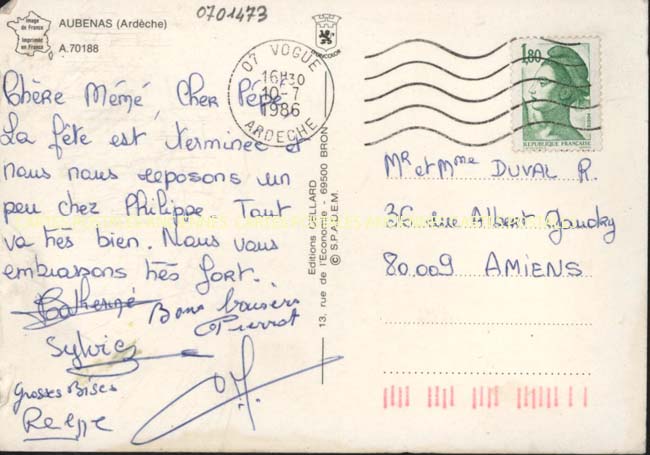 Image de France
Imprimé en France
AUBENAS (Ardèche)
A.70188
0701473
07 VOGUE
16H30
10-7
1986
ARDECHE
1,80
REPUBLIQUE FRANÇAISE
Chère Mémé, Cher Pépé,
La fête est terminée et
nous nous reposons un
peu chez Philippe. Tout
va très bien. Nous vous
embrassons très fort.
Bons baisers
Pierrot
Sylvie
Grosses Bises
Editions CELLARD
13, rue de l'Economie - 69500 BRON
© S.P.A.D.E.M.
Mr et Mme DUVAL R.
36 rue Albert Gaudry
80.009 AMIENS